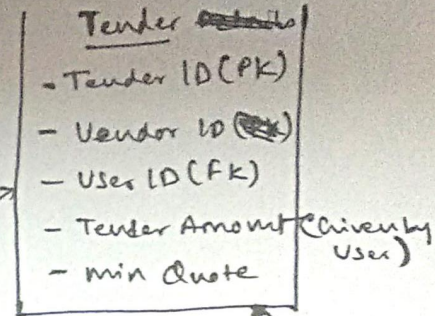 Tender
- Tender ID (PK)
- Vendor ID
- User ID (FK)
- Tender Amount (Given by User)
- min Quote